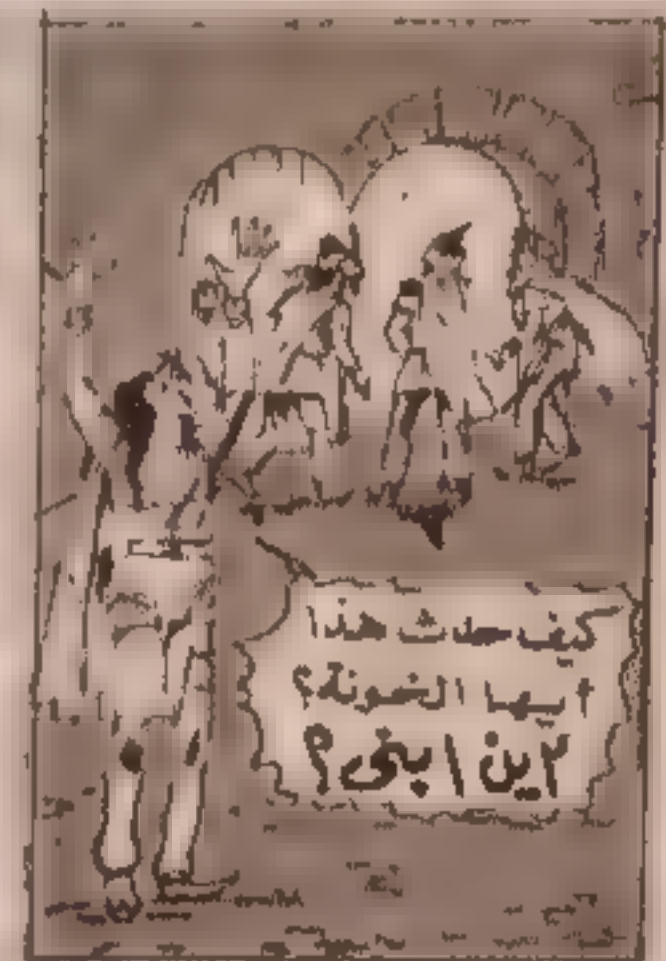 كيف حدث هذا
أيها الخونة؟
أين ابنى؟